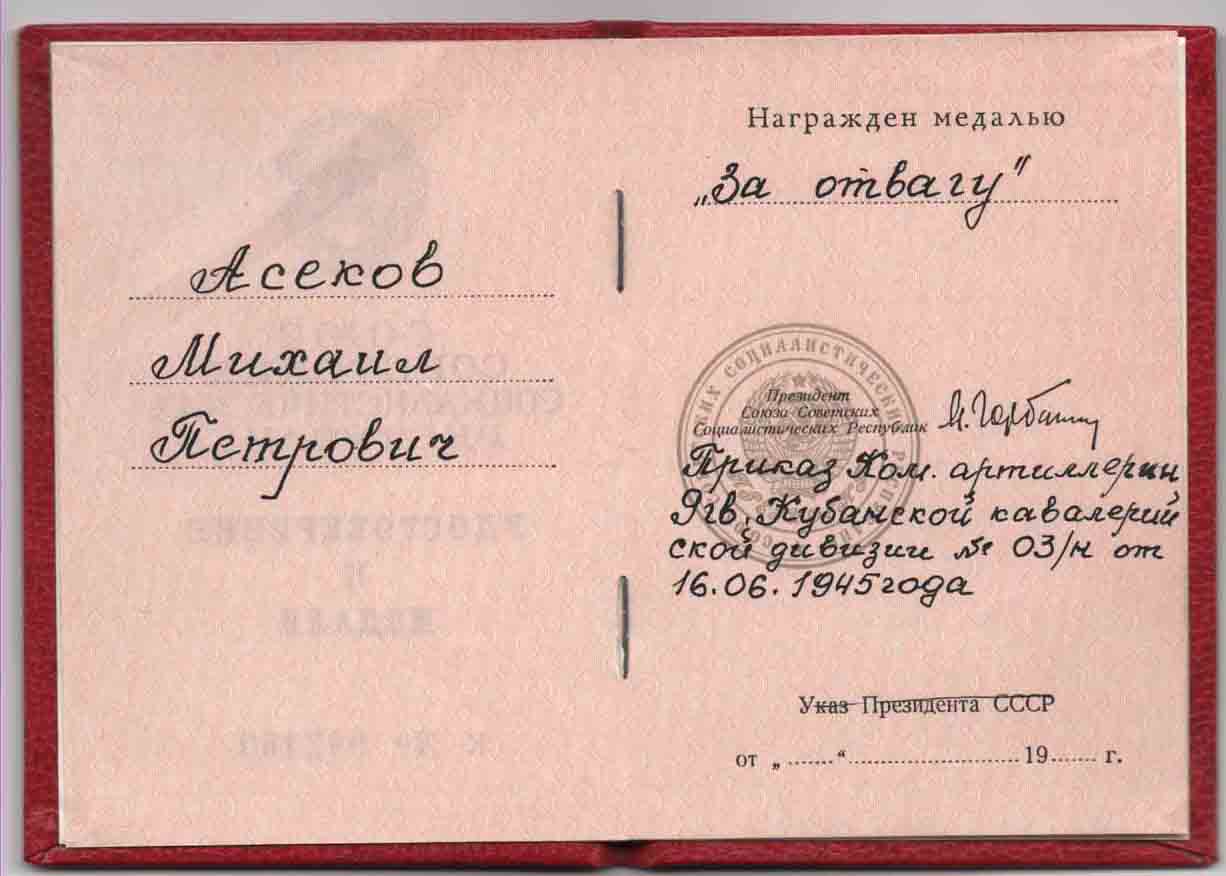 Асеков
Михаил
Петрович
Награжден медалью
„За отвагу"
Президент
Союза Советских
Социалистических Республик
Приказ Ком. артиллерии
9гв. Кубанской кавалерий
ской дивизии № 03/н от
16.06.1945 года
Указ Президента СССР
от „......." .......................... 19....... г.